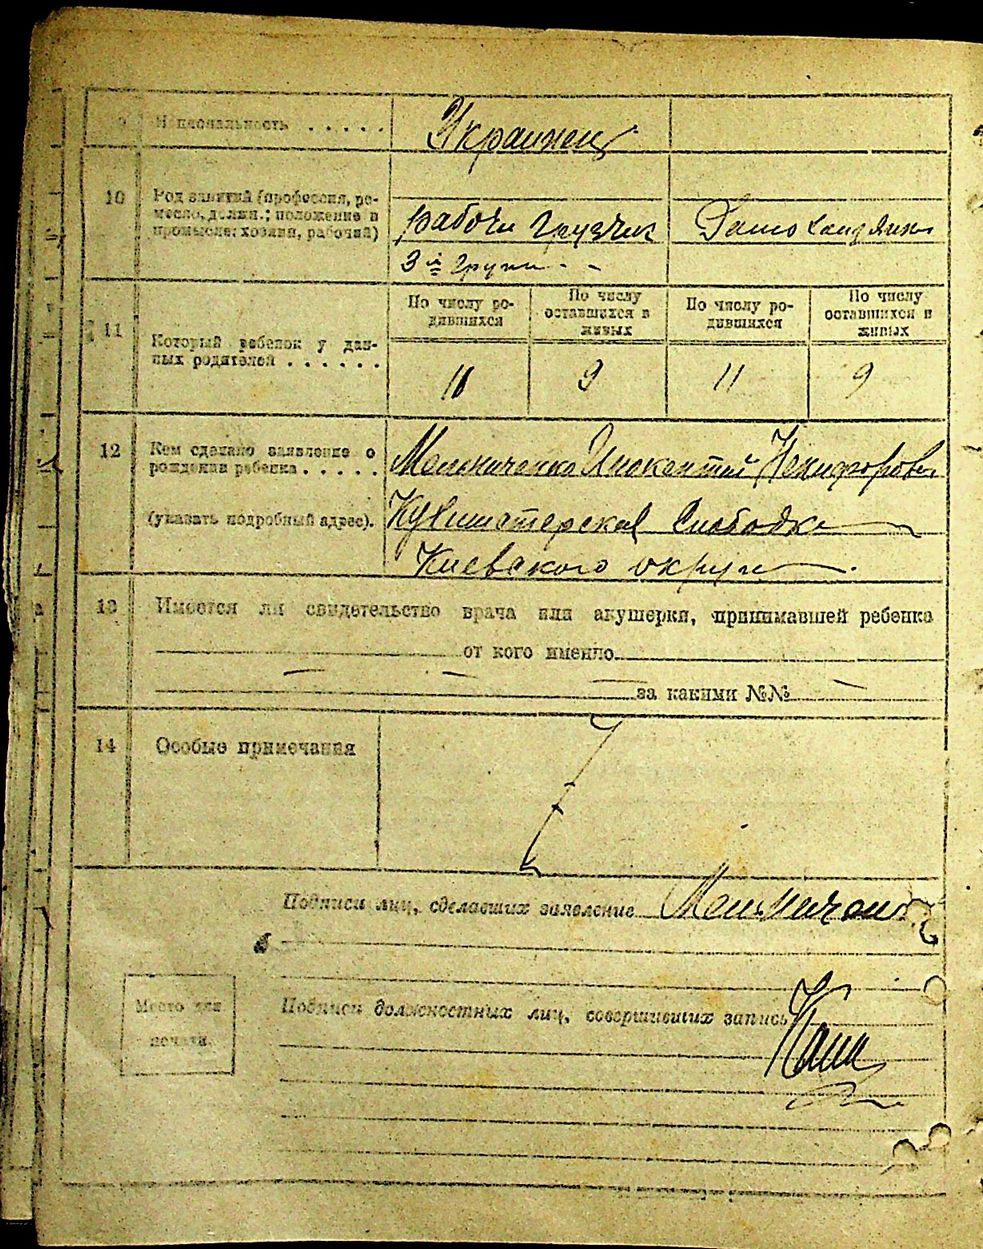 9 Национальность . . . . . Украинец
10 Род занятий (профессия, ре-
месло, должн.; положение в
промысле: хозяин, рабочий)
рабочи грузчик
3й групи - -
11 Который ребенок у дан-
ных родителей . . . . . .
По числу ро-
дившихся
По числу
оставшихся в
живых
По числу ро-
дившихся
По числу
оставшихся в
живых
11 9 11 9
12 Кем сделано заявление о
рождении ребенка . . . . .
(указать подробный адрес).
Мельниченко Инокентий Никифорович
Слободка
Киевского округи
13 Имеется ли свидетельство врача или акушерки, принимавшей ребенка
от кого именно
за какими №№
14 Особые примечания
Подписи лиц, сделавших заявление
Место для
печати.
Подписи должностных лиц, совершивших запись